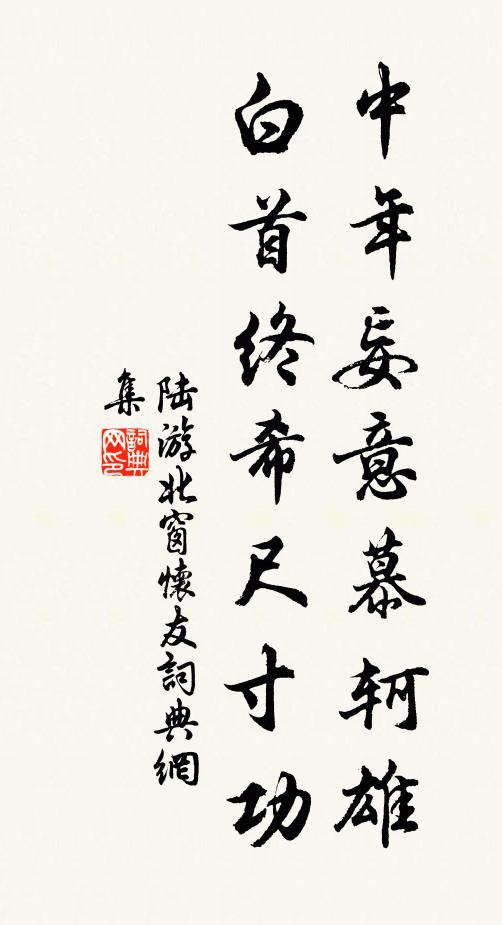 中年妄意慕軻雄
白首終希尺寸功
陆游北窗懷友詞典網
集
詞典
网印